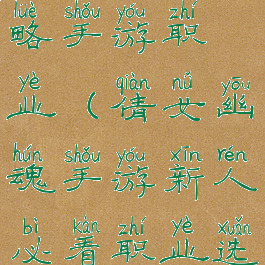 lüè shǒu yóu zhí
略手游职
yè qiàn nǚ yōu
业(倩女幽
hún shǒu yóu xīn rén
魂手游新人
bì kàn zhí yè xuǎn
必看职业选